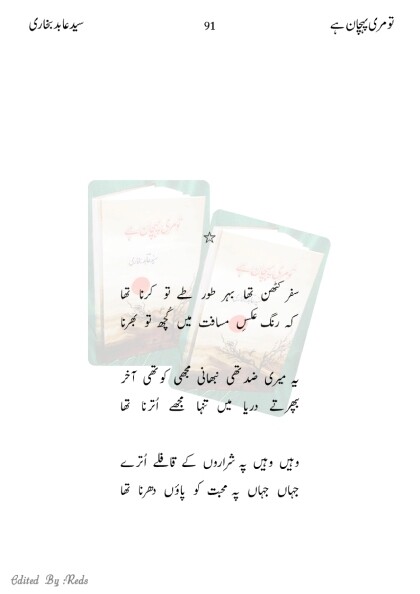 تو مری پہچان ہے
91
سید عابد بخاری
☆
سفر کٹھن تھا بہر طور طے تو کرنا تھا
کہ رنگ عکسِ مسافت میں کُچھ تو بھرنا تھا
یہ میری ضد تھی نبھانی مجھی کو تھی آخر
بپھرتے دریا میں تنہا مجھے اُترنا تھا
وہیں وہیں پہ شراروں کے قافلے اُترے
جہاں جہاں پہ محبت کو پاؤں دھرنا تھا
تو مری پہچان ہے
تو مری پہچان ہے
Edited By Reds